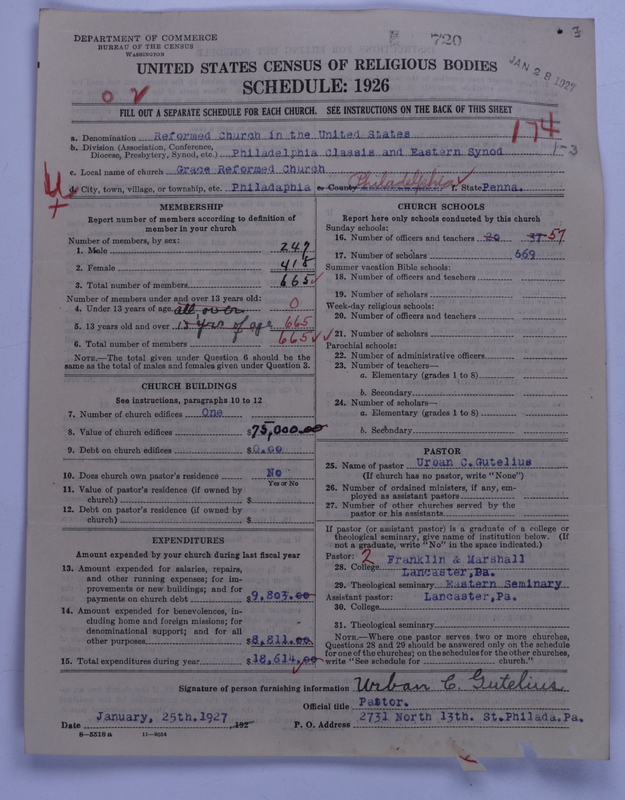 DEPARTMENT OF COMMERCE
BUREAU OF THE CENSUS
WASHINGTON
720
3
JAN 28 1927
UNITED STATES CENSUS OF RELIGIOUS BODIES
SCHEDULE: 1926
FILL OUT A SEPARATE SCHEDULE FOR EACH CHURCH. SEE INSTRUCTIONS ON THE BACK OF THIS SHEET
174
1-3
a. Denomination Reformed Church in the United States
b. Division (Association, Conference, Diocese, Presbytery, Synod, etc.) Philadelphia Classis and Eastern Synod
c. Local name of church Grace Reformed Church
d. City, town, village, or township, etc. Philadaphia e. County Philadelphia f. State Penna.
MEMBERSHIP
Report number of members according to definition of
member in your church
Number of members, by sex:
1. Male 247
2. Female 418
3. Total number of members 665
Number of members under and over 13 years old:
4. Under 13 years of age all over 0
5. 13 years old and over 15 yrs of age 665
6. Total number of members 665
NOTE.—The total given under Question 6 should be the
same as the total of males and females given under Question 3.
CHURCH BUILDINGS
See instructions, paragraphs 10 to 12
7. Number of church edifices One
8. Value of church edifices $75,000.00
9. Debt on church edifices $0.00
10. Does church own pastor's residence? No
Yes or No
11. Value of pastor's residence (if owned by
church) $
12. Debt on pastor's residence (if owned by
church) $
EXPENDITURES
Amount expended by your church during last fiscal year
13. Amount expended for salaries, repairs,
and other running expenses; for im-
provements or new buildings; and for
payments on church debt $9,803.00
14. Amount expended for benevolences, in-
cluding home and foreign missions; for
denominational support; and for all
other purposes $8,811.00
15. Total expenditures during year $18,614.00
CHURCH SCHOOLS
Report here only schools conducted by this church
Sunday schools:
16. Number of officers and teachers 20 37 57
17. Number of scholars 669
Summer vacation Bible schools:
18. Number of officers and teachers
19. Number of scholars
Week-day religious schools:
20. Number of officers and teachers
21. Number of scholars
Parochial schools:
22. Number of administrative officers
23. Number of teachers—
a. Elementary (grades 1 to 8)
b. Secondary
24. Number of scholars—
a. Elementary (grades 1 to 8)
b. Secondary
PASTOR
25. Name of pastor Urban C.Gutelius
(If church has no pastor, write "None")
26. Number of ordained ministers, if any, em-
ployed as assistant pastors
27. Number of other churches served by the
pastor or his assistants
If pastor (or assistant pastor) is a graduate of a college or
theological seminary, give name of institution below. (If
not a graduate, write "No" in the space indicated.)
Pastor: 2
28. College Franklin & Marshall
Lancaster,Pa.
29. Theological seminary Eastern Seminary
Assistant pastor: Lancaster,Pa.
30. College
31. Theological seminary
NOTE.—Where one pastor serves two or more churches,
Questions 28 and 29 should be answered only on the schedule
for one of the churches; on the schedules for the other churches,
write "See schedule for church."
Signature of person furnishing information Urban C. Gutelius
Official title Pastor.
Date January, 25th.1927 , 192 P. O. Address 2731 North 13th. St.Philada.Pa.
8—5518 a 11—9054